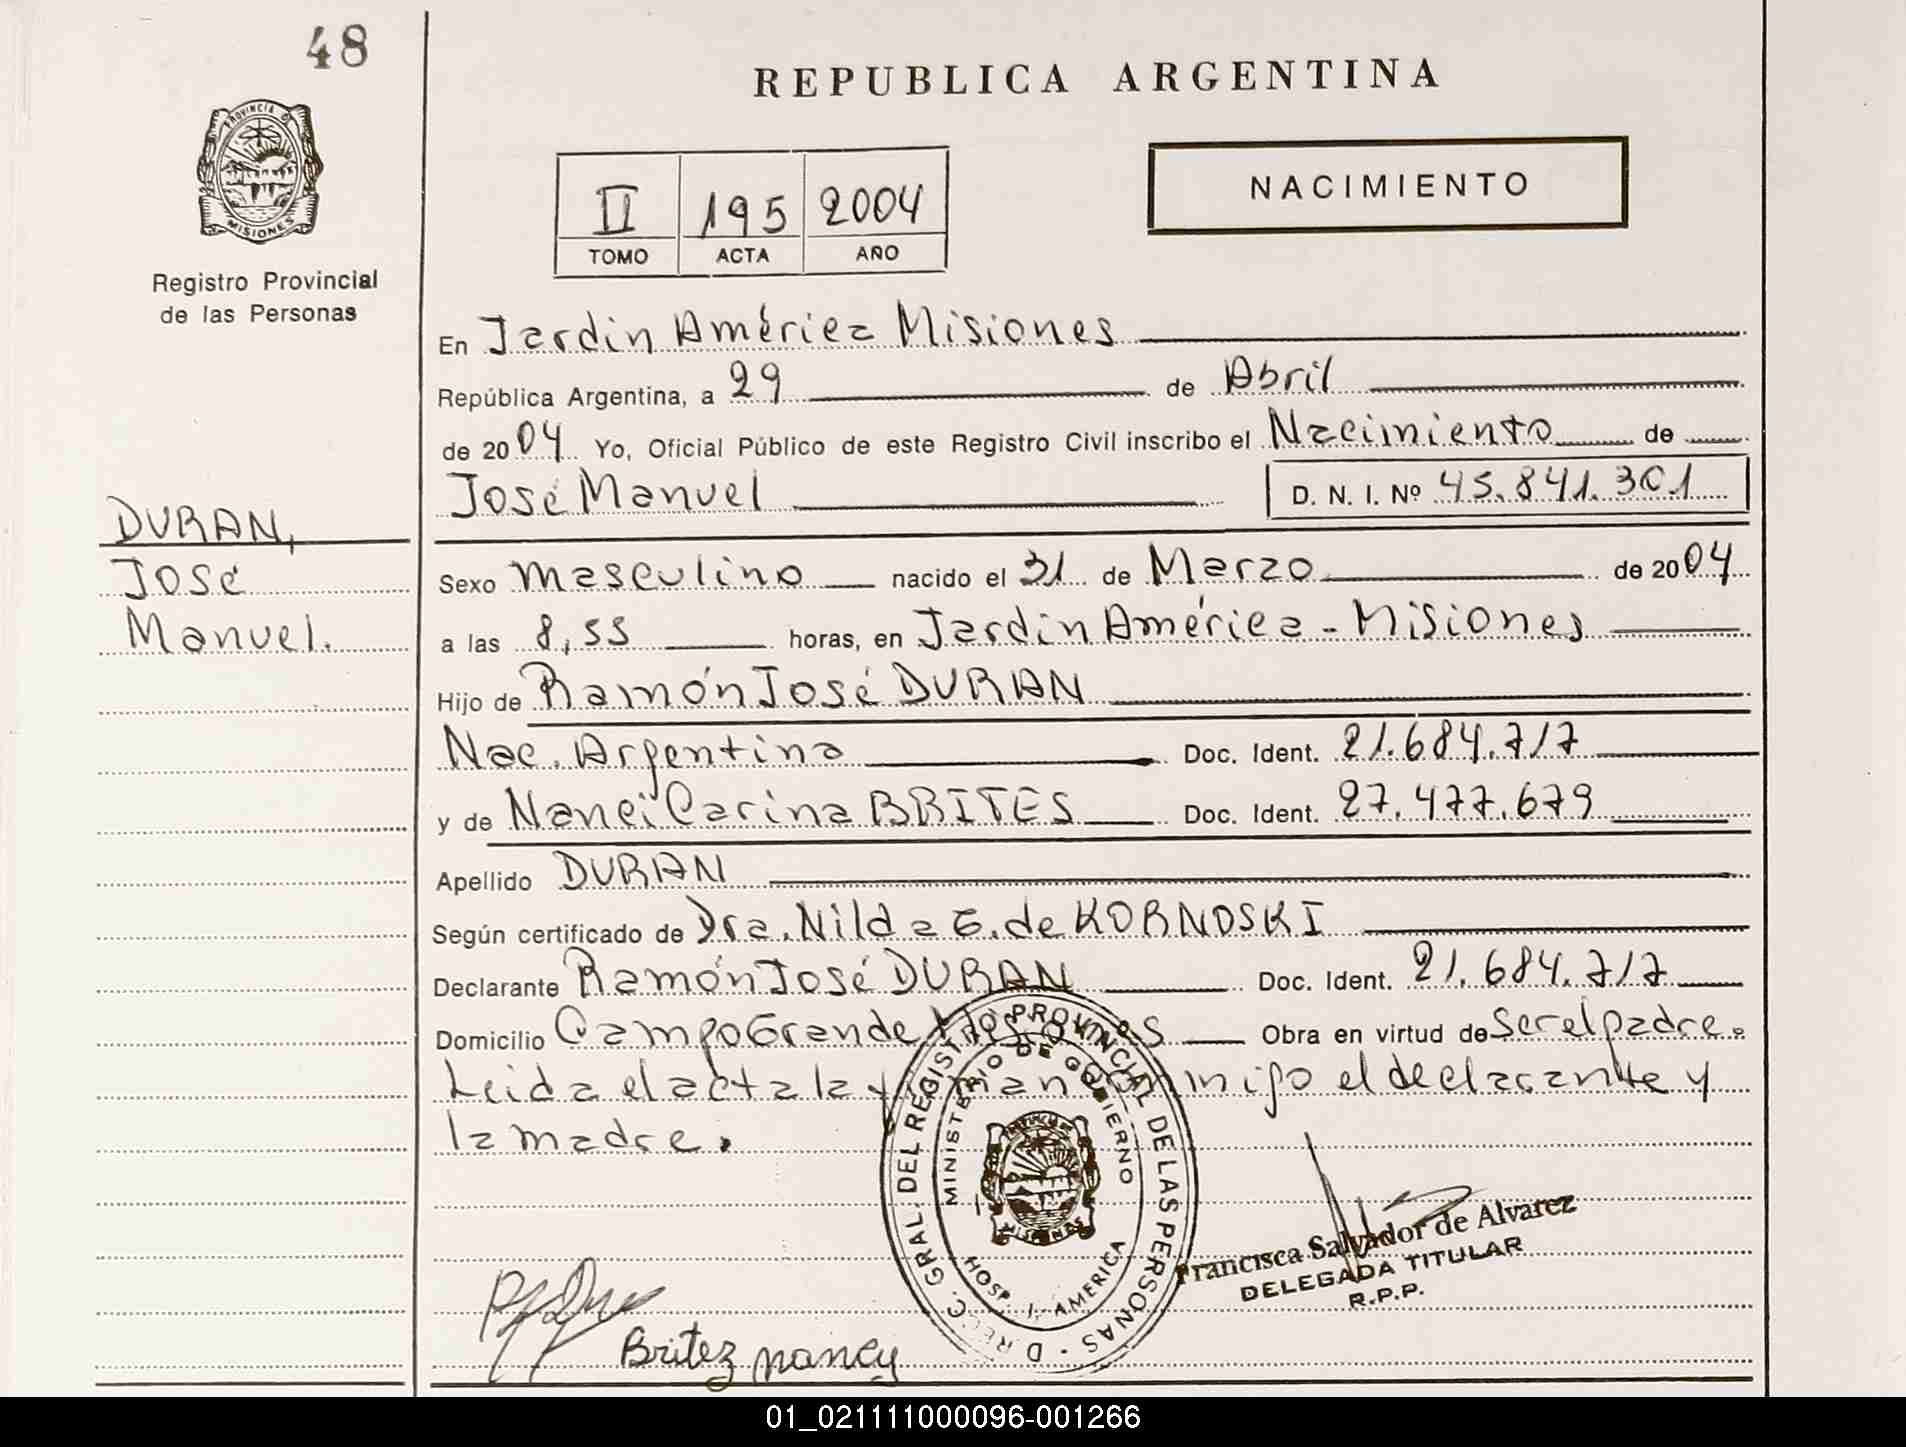 48
REPUBLICA ARGENTINA
PROVINCIA D
MISIONES
Registro Provincial
de las Personas
II 195 2004
TOMO ACTA AÑO
NACIMIENTO
En Jardin América Misiones
República Argentina, a 29 de Abril
de 2004 Yo, Oficial Público de este Registro Civil inscribo el Nacimiento de
José Manuel D. N. I. Nº 45.841.301
DURAN,
José
Manuel.
Sexo masculino nacido el 31 de Marzo de 2004
a las 8,55 horas, en Jardin América - Misiones
Hijo de Ramón José DURAN
Nac. Argentina Doc. Ident. 21.684.717
y de Nanci Carina BRITES Doc. Ident. 27.477.679
Apellido DURAN
Según certificado de Dra. Nilda E. de KORNOSKI
Declarante Ramón José DURAN Doc. Ident. 21.684.717
Domicilio Campo Grande Misiones Obra en virtud de Ser el padre.
Leida el acta la firman conmigo el declarante y
la madre.
DIREC. GRAL. DEL REGISTRO PROVINCIAL DE LAS PERSONAS
MINISTERIO DE GOBIERNO
MISIONES
HOSP. J. AMERICA
Francisca Salvador de Alvarez
DELEGADA TITULAR
R.P.P.
Britez nancy
01_021111000096-001266